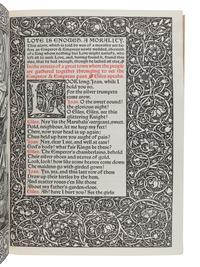 LOVE IS ENOUGH. A MORALITY.
This story, which is told by way of a morality set be-
fore an Emperor & Empress newly wedded, showeth
of a King whom nothing but Love might satisfy, who
left all to seek Love, and, having found it, found this
also, that he had enough, though he lacked all else.
In the streets of a great town where the people
are gathered together thronging to see the
Emperor & Empress pass. Giles speaketh.
LOOK long, Joan, while I
hold you so,
For the silver trumpets
come arow.
Joan. O the sweet sound!
the glorious sight!
O Giles, Giles, see this
glittering Knight!
Giles. Nay 'tis the Marshals'-sergeant, sweet.
Hold, neighbour, let me keep my feet!
There, now your head is up again;
Thus held up have you aught of pain?
Joan. Nay, clear I see, and well at ease!
God's body! what fair Kings be these?
Giles. The Emperor's chamberlains, behold
Their silver shoes and staves of gold.
Look, look! how like some heaven come down
The maidens go with girded gown!
Joan. Yea, yea, and this last row of them
Draw up their kirtles by the hem,
And scatter roses e'en like those
About my father's garden-close.
Giles. Ah! have I hurt you? See the girls